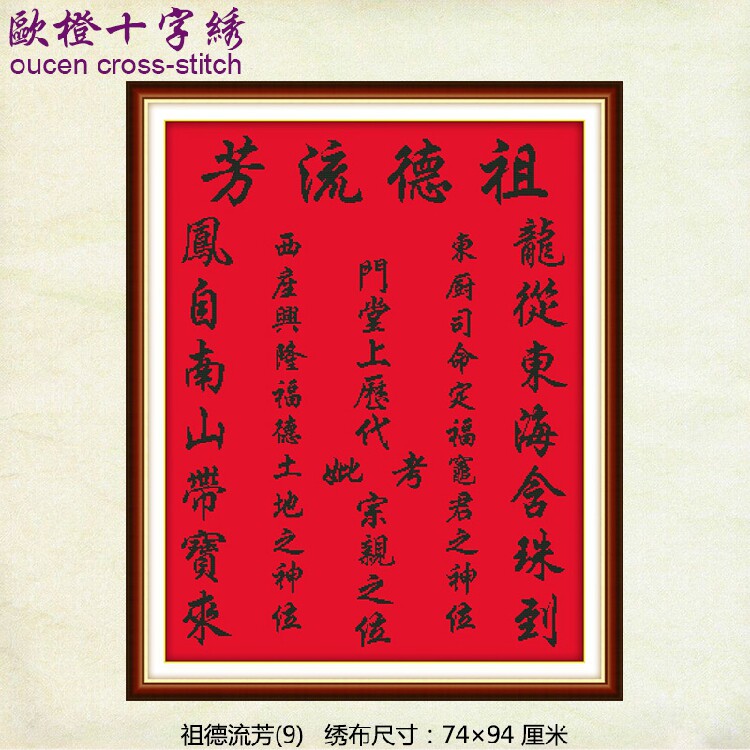 歐橙十字綉
oucen cross-stitch
祖德流芳
龍從東海含珠到
東厨司命定福竈君之神位
門堂上歷代
考妣
宗親之位
西座興隆福德土地之神位
鳳自南山帶寶來
祖德流芳(9) 绣布尺寸：74×94 厘米